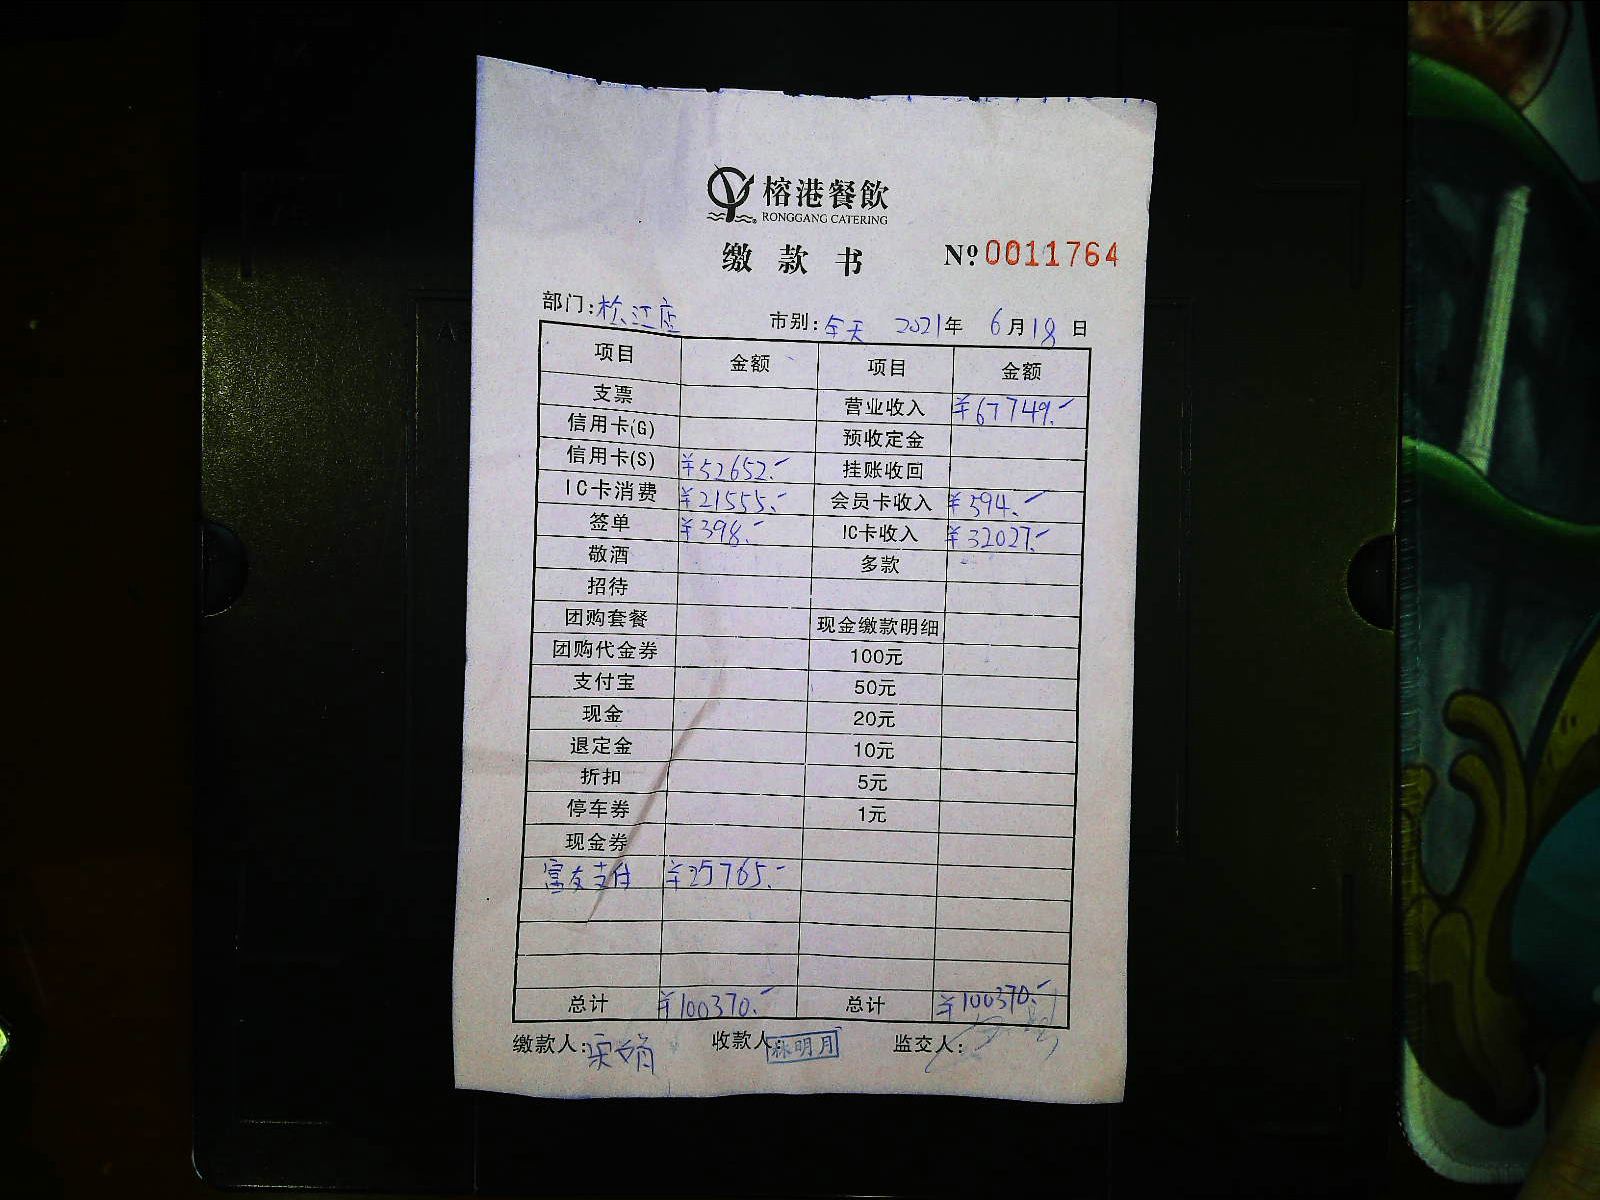 榕港餐飲
RONGGANG CATERING
缴款书 Nº 0011764
部门:松江店 市别:全天 2021年 6月18日
项目 金额 项目 金额
支票 营业收入 ¥67749.-
信用卡(G) 预收定金
信用卡(S) ¥52652.- 挂账收回
IC卡消费 ¥21555.- 会员卡收入 ¥594.-
签单 ¥398.- IC卡收入 ¥32027.-
敬酒 多款
招待
团购套餐 现金缴款明细
团购代金券 100元
支付宝 50元
现金 20元
退定金 10元
折扣 5元
停车券 1元
现金券
富友支付 ¥25765.-
总计 ¥100370.- 总计 ¥100370.-
缴款人: 收款人:林明月 监交人: